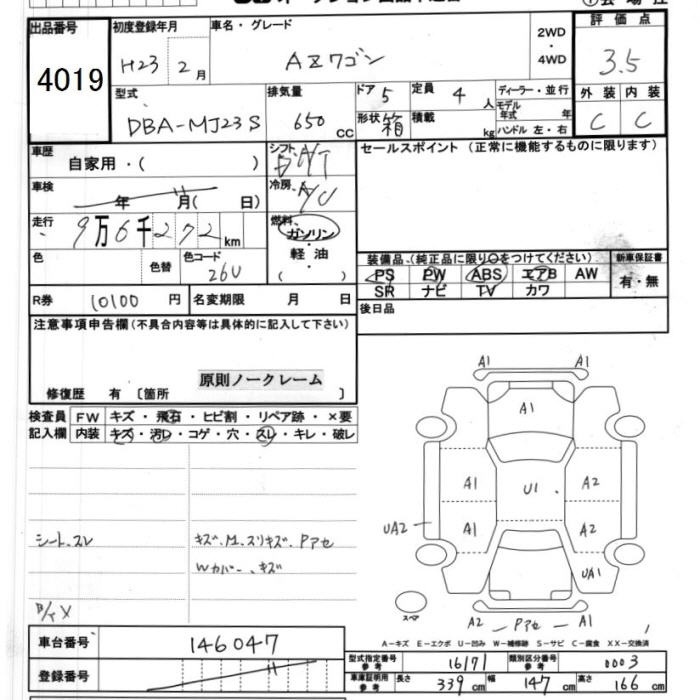 出品番号
4019
初度登録年月
H23 2月
車名・グレード
AZワゴン
2WD
・
4WD
評価点
3.5
外装 内装
C C
型式
DBA-MJ23S
排気量
650 CC
ドア 5
形状 箱
定員 4 人
積載 kg
ディーラー・並行
モデル年式 年
ハンドル 左・右
車歴
自家用・( )
シフト
冷房 A/C
セールスポイント (正常に機能するものに限ります)
車検
年 月( 日)
走行
9万6千272km
燃料
ガソリン・
軽油・
( )
色
色替
色コード
26U
装備品 (純正品に限り○をつけてください)
PS PW ABS エアB AW
SR ナビ TV カワ
新車保証書
有・無
R券 10100 円
名変期限 月 日
後日品
注意事項申告欄(不具合内容等は具体的に記入して下さい)
原則ノークレーム
修復歴 有 〔箇所 〕
検査員
記入欄
FW キズ・飛石・ヒビ割・リペア跡・×要
内装 キズ・汚レ・コゲ・穴・スレ・キレ・破レ
シート、スレ
キズ、M、スリキズ、Pアセ
Wカバー、キズ
A1 A1
A1
A1 U1 A2
A1 A2
UA2
UA1
スペア
A2 Pアセ A1
A-キズ E-エクボ U-凹み W-補修跡 S-サビ C-腐食 XX-交換済
車台番号
146047
登録番号
型式指定番号 参考
16171
類別区分番号 参考
0003
車庫証明用 参考
長さ 339cm 幅 147cm 高さ 166cm